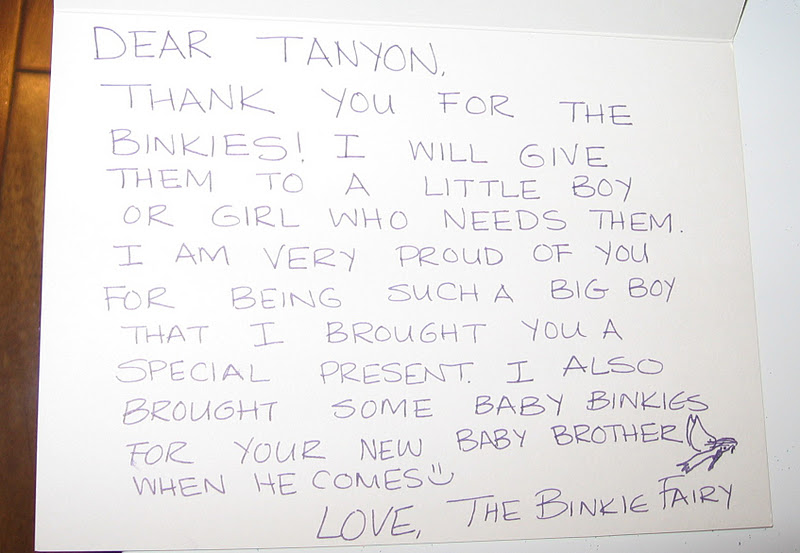 DEAR TANYON,
THANK YOU FOR THE
BINKIES! I WILL GIVE
THEM TO A LITTLE BOY
OR GIRL WHO NEEDS THEM.
I AM VERY PROUD OF YOU
FOR BEING SUCH A BIG BOY
THAT I BROUGHT YOU A
SPECIAL PRESENT. I ALSO
BROUGHT SOME BABY BINKIES
FOR YOUR NEW BABY BROTHER
WHEN HE COMES
LOVE, THE BINKIE FAIRY